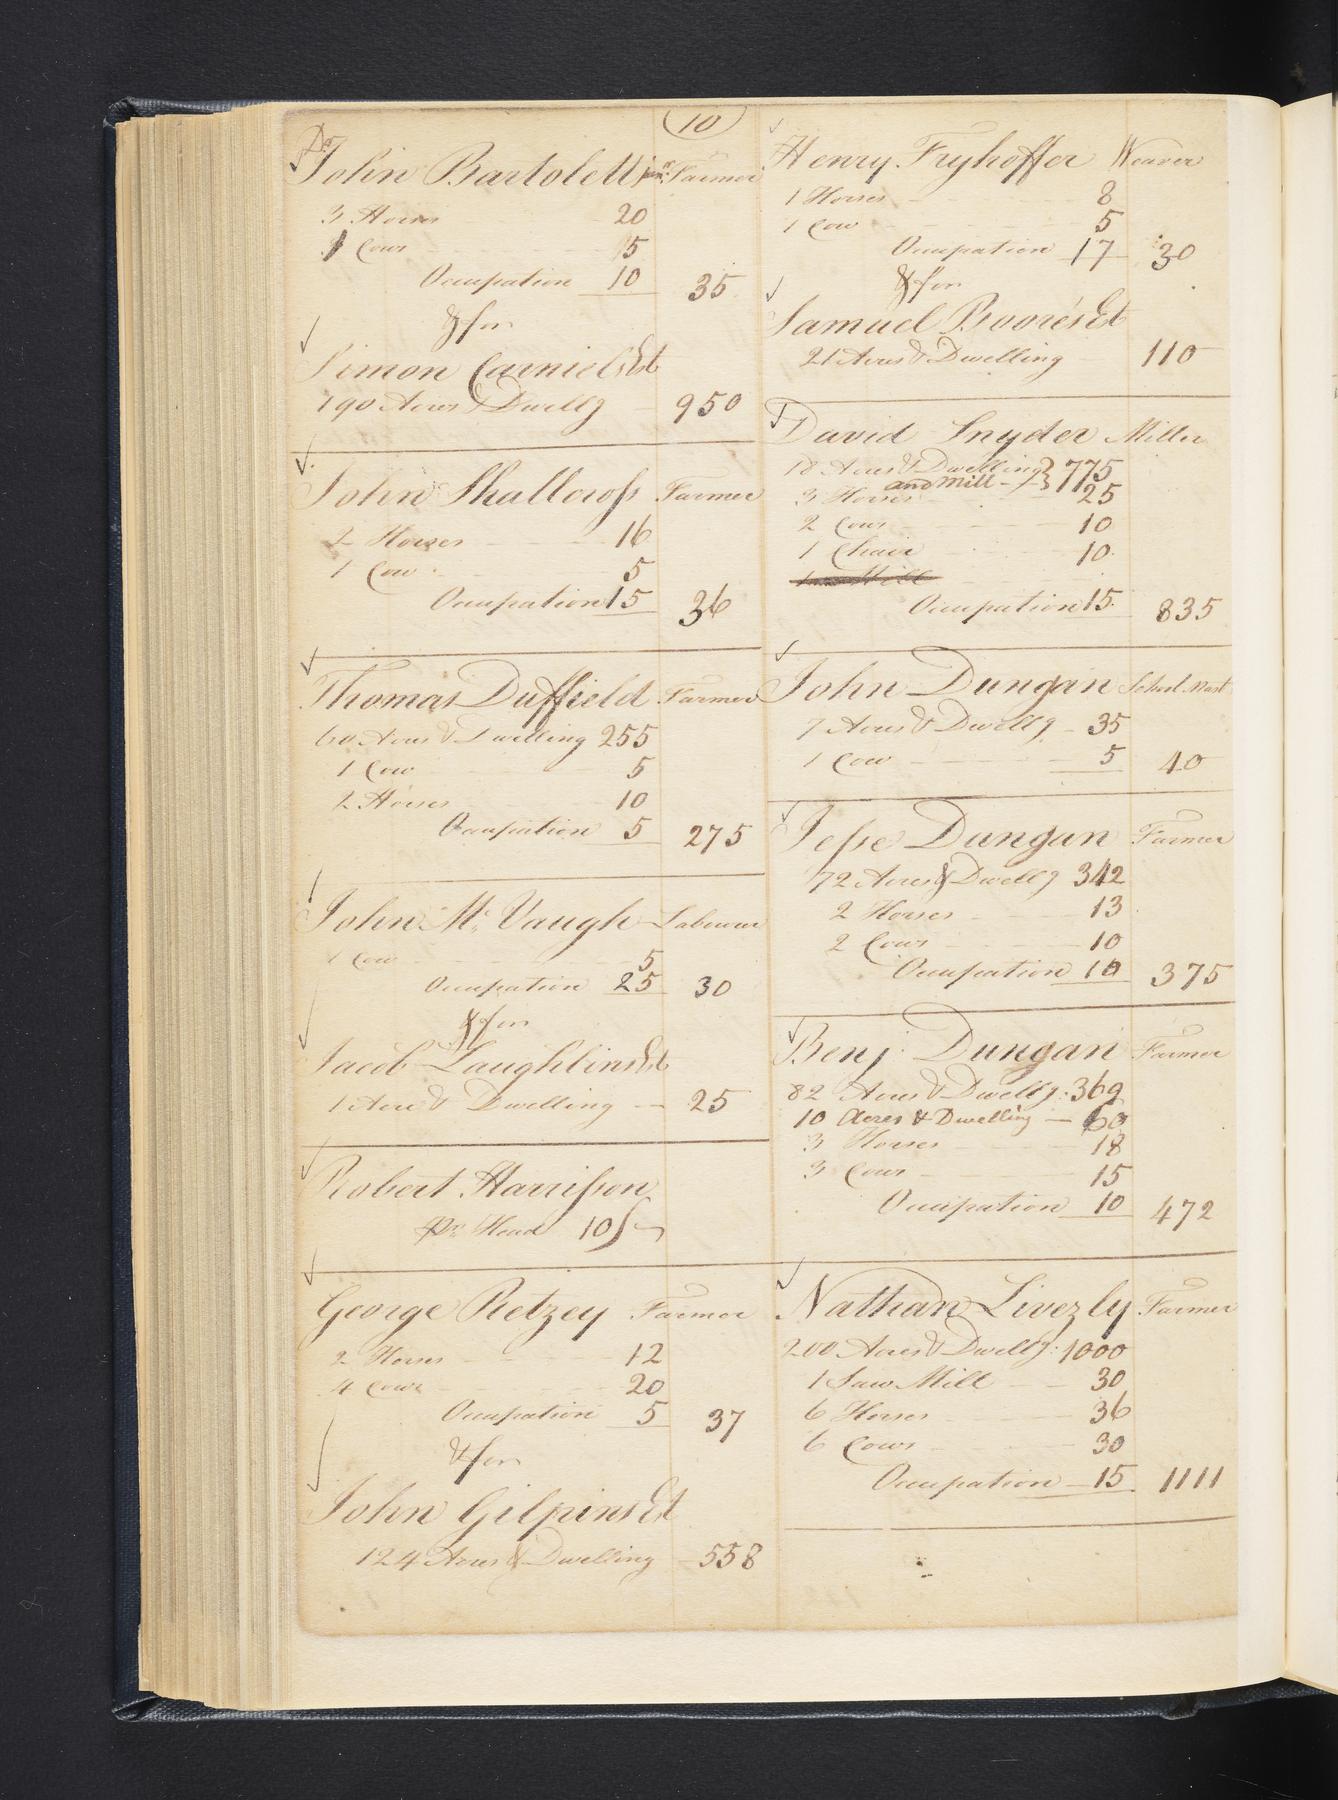 10
Do
John Bartolett junr. Farmer
3 Horses 20
1 Cow 15
Occupation 10 35
& for
Simon Carniels Est
190 Acres & Dwellg 950
John Shallcross Farmer
2 Horses 16
1 Cow 5
Occupation 15 36
Thomas Duffield Farmer
60 Acres & Dwelling 255
1 Cow 5
2 Horses 10
Occupation 5 275
John Mc Vaugh Labourer
1 Cow 5
Occupation 25 30
& for
Jacob Laughlins Est
1 Acre & Dwelling 25
Robert Harrisson
Pr. Head 10 S
George Retzey Farmer
2 Horses 12
4 Cows 20
Occupation 5 37
& for
John Gilpins Est
124 Acres & Dwelling 558
Henry Fryhoffer Weaver
1 Horses 8
1 Cow 5
Occupation 17 30
& for
SamuelBoores Est
21 Acres & Dwelling 110
David Snyder Miller
18 Acres & Dwelling 775
and Mill
3 Horses 25
2 Cows 10
1 Chair 10
1 Mill
Occupation 15 835
John Dungan School Mast
7 Acres & Dwellg 35
1 Cow 5 40
Jesse Dungan Farmer
72 Acres & Dwellg 342
2 Horses 13
2 Cows 10
Occupation 10 375
Benj. Dungan Farmer
82 Acres & Dwellg: 369
10 Acres & Dwelling 60
3 Horses 18
3 Cows 15
Occupation 10 472
Nathan Livezly Farmer
200 Acres & Dwellg: 1000
1 Saw Mill 30
6 Horses 36
6 Cows 30
Occupation 15 1111